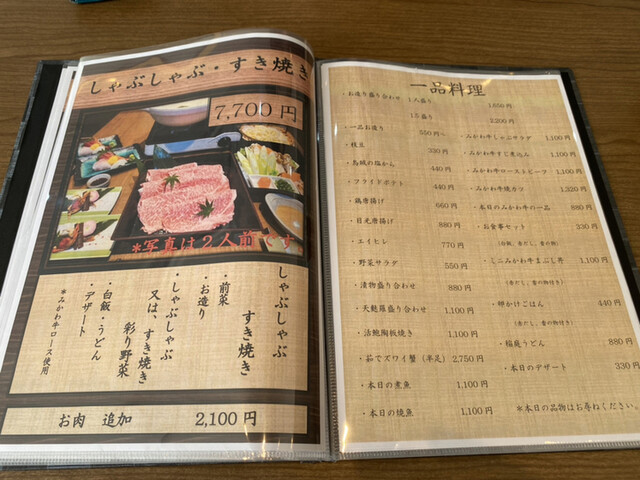 しゃぶしゃぶ・すき焼き
7,700 円
*写真は2人前です
しゃぶしゃぶ
すき焼き
・前菜
・お造り
・しゃぶしゃぶ
又は、すき焼き
彩り野菜
・白飯・うどん
・デザート
*みかわ牛ロース使用
お肉 追加 2,100 円
一品料理
・お造り盛り合わせ 1人盛り 1,650円
1.5盛り 2,200円
・一品お造り 550円～
・枝豆 330円
・烏賊の塩から 440円
・フライドポテト 440円
・鶏唐揚げ 660円
・目光唐揚げ 880円
・エイヒレ 770円
・野菜サラダ 550円
・漬物盛り合わせ 880円
・天麩羅盛り合わせ 1,100円
・活鮑陶板焼き 1,100円
・茹でズワイ蟹(半足) 2,750円
・本日の煮魚 1,100円
・本日の焼魚 1,100円
・みかわ牛しゃぶサラダ 1,100円
・みかわ牛すじ煮込み 1,100円
・みかわ牛ローストビーフ 1,100円
・みかわ牛焼カツ 1,320円
・本日のみかわ牛の一品 880円
・お食事セット 330円
(白飯、赤だし、香の物)
・ミニみかわ牛まぶし丼 1,100円
(赤だし香の物付き)
・卵かけごはん 440円
(赤だし、香の物付き)
・稲庭うどん 880円
・本日のデザート 330円
*本日の品物はお尋ねください。